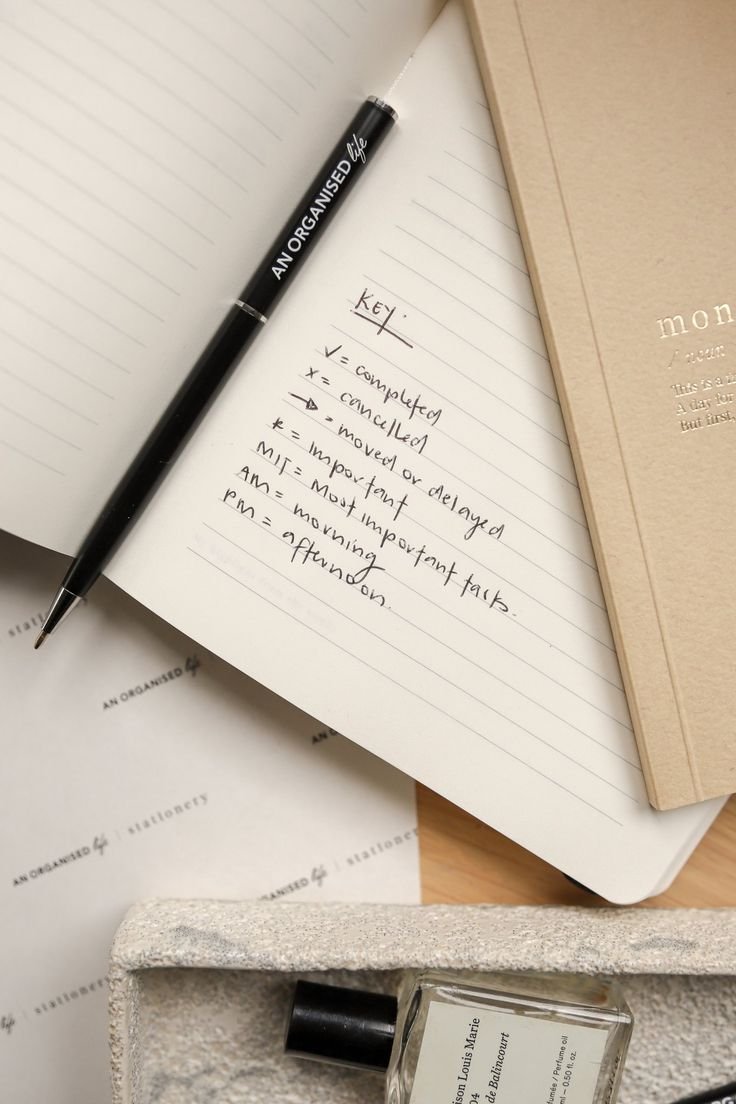 AN ORGANISED life
KEY.
✓ = completed
x = cancelled
→ = moved or delayed
* = Important
MIT = Most important tasks.
AM = morning
PM = afternoon.
mon
/ noun
This is a
A day for
But first,
AN ORGANISED life
AN ORGANISED life | stationery
ORGANISED life | stationery
life | stationery
Louis Marie
04
de Balincourt
Perfume oil
0.50 fl. oz.